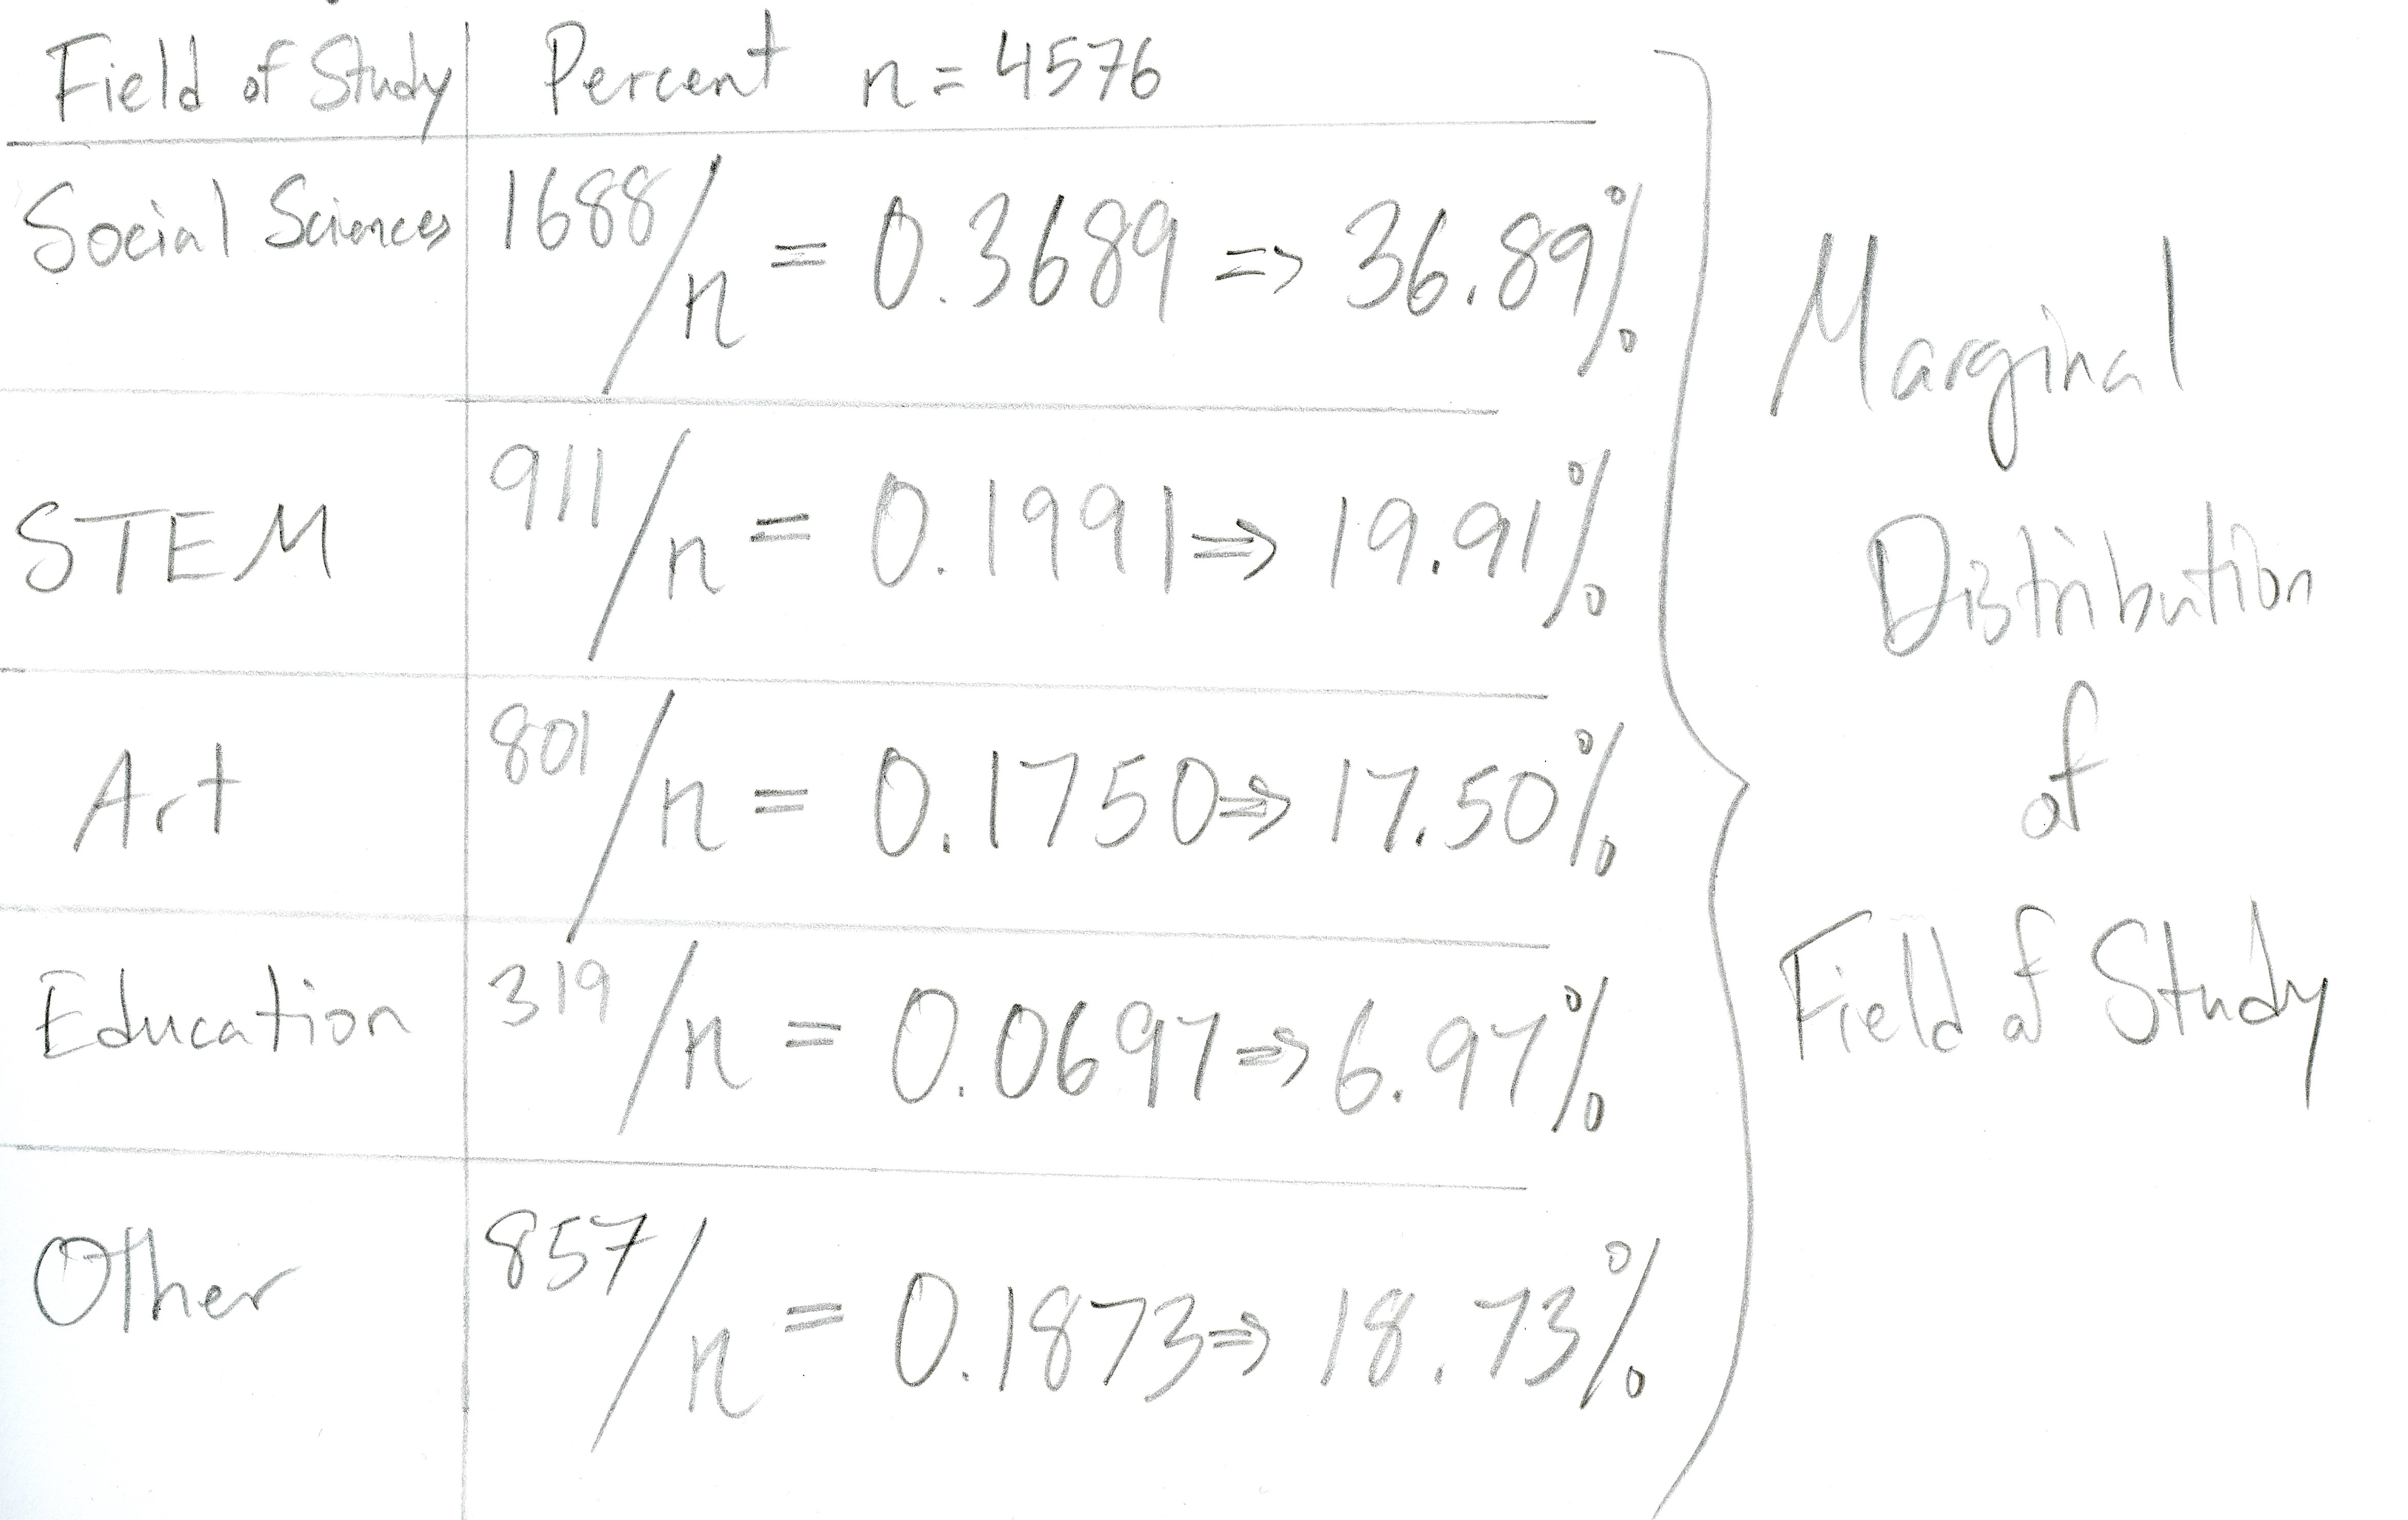 Field of Study Percent n = 4576
Social Sciences 1688/n = 0.3689 => 36.89%
STEM 911/n = 0.1991 => 19.91%
Art 801/n = 0.1750 => 17.50%
Education 319/n = 0.0697 => 6.97%
Other 857/n = 0.1873 => 18.73%
Marginal
Distribution
of
Field of Study